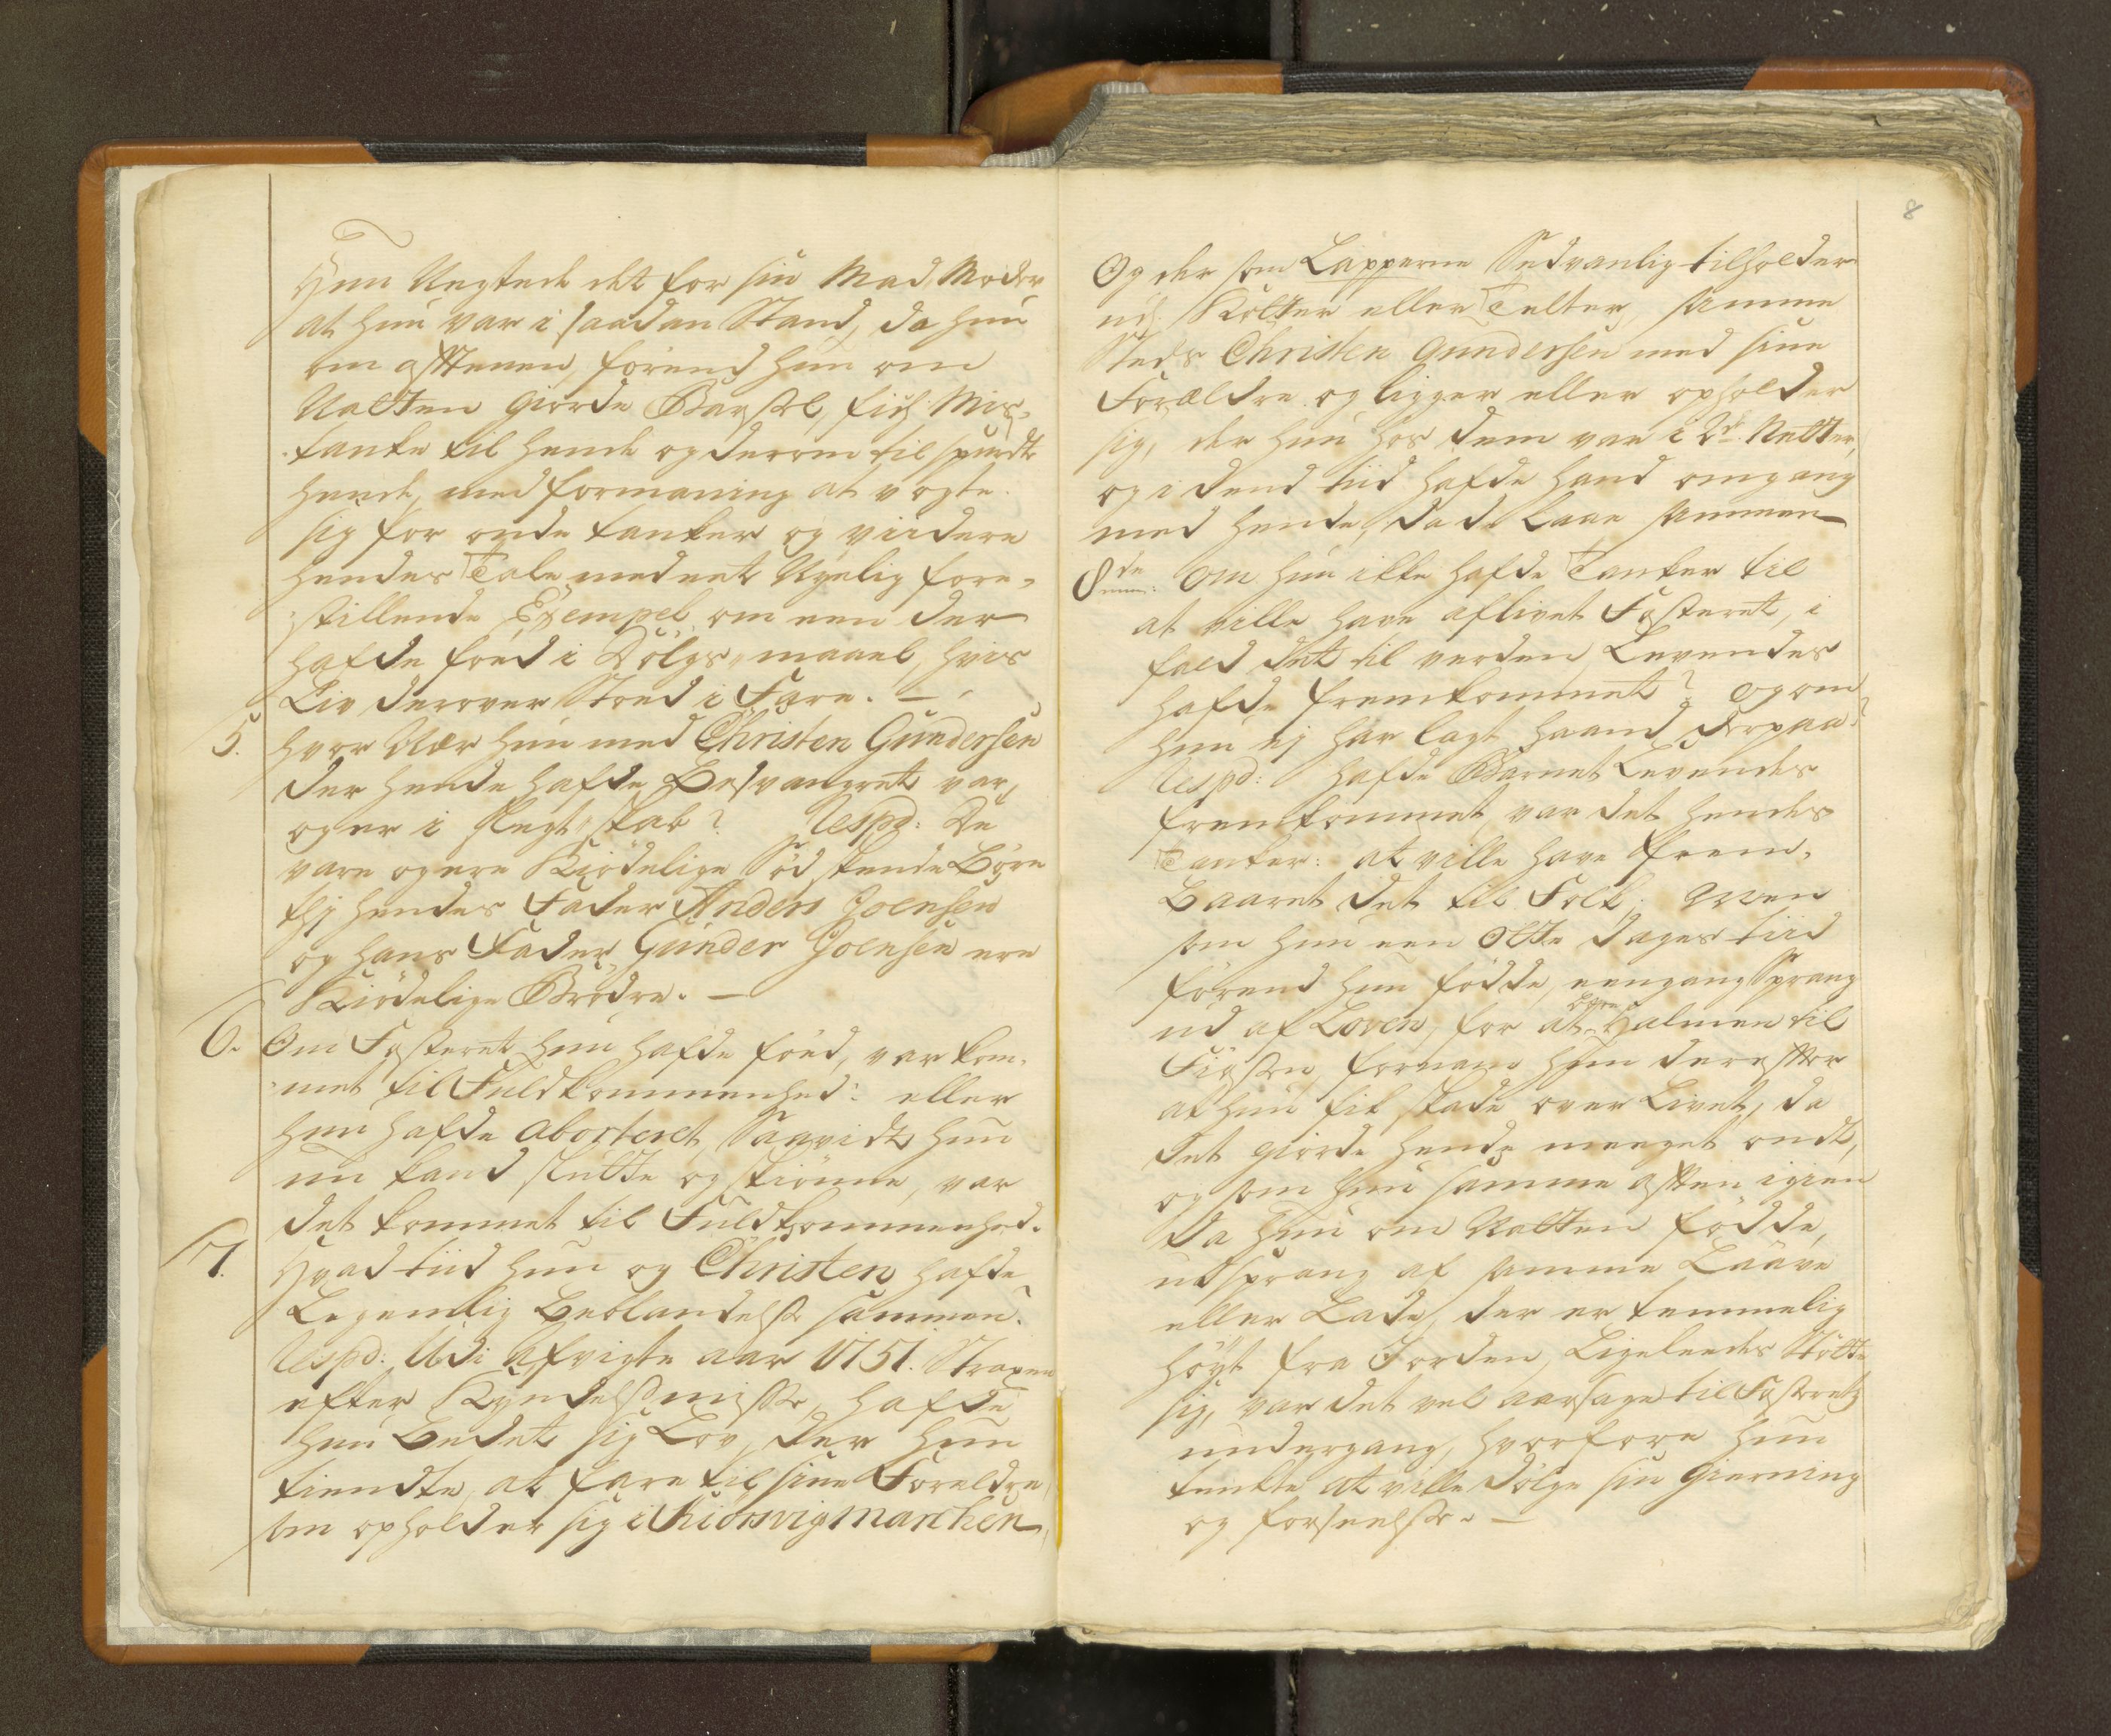 Hun Negtede det for sin Mad Moder
at hun var i saadan Stand, da hun
om afftenen, förend hun om
Natten giorde Barsel, fich Mis-
tanke til hende og derom tilspurdte
hende, med formaning at vogte
sig for onde tanker og viidere
hendes Tale med eet Nyelig fore-
stillende Exempel om een der
hafde föed i Dölgs-maael, hvis
Liv derover Stoed i Fare. —
5. hvor Nær hun med Christen Gundersen
der hende hafde Besvangret var,
og er i Slegtskab? Respd: De
vare og ere Kiödelige Södskende Börn
thj hendes Fader Anders Joensen
og hans Fader Gunder Joensen ere
Kiödelige Brödre. —
6. Om Fosteret hun hafde föed, var kom-
met til Fuldkommenhed: eller
hun hafde aborteret, Saavidt hun
nu kand slutte og skiönne, var
det kommet til Fuldkommenhed.
7. Hvad tiid hun og Christen hafde
Legemlig Beblandelse sammen?
Respd: Udi afvigte aar 1751. Straxen
efter Kyndelsmisse, hafde
hun Bedet sig Lov, der hun
tiendte, at fare til sine Foreldre
som opholder sig i Kiörsvigmarchen
8
Og der som Lapperne Sedvanlig tilholder
udj Kolter eller Telter, samme
Steds Christen Gundersen med sine
Forældre og ligger eller opholder
sig, der hun hos dem var i 2de Netter,
og i dend tiid hafde hand omgang
med hende, da de Laae sammen
8de Om hun ikke hafde Tanker til
at ville have aflivet Fosteret, i
fald det til verden Levendes
hafde fremkommet? og om
hun ej har lagt haand derpaa?
Respd: hafde Barnet Levendes
fremkommet, var det hendes
Tanker: at ville have frem-
Baaret det til Folk; Men
som hun een Otte dages tiid
förend hun födde, eengang Sprang
ud af Loven, for at bære Halmen til
Fiøsen, fornam hun derefter
at hun fik skade over Livet, da
det giorde hende meeget ondt,
og som hun samme aften igien
da hun om Natten födde,
udsprang af samme Laave
eller Lade, der er temmelig
höyt fra Jorden, Ligeleedes Stötte
sig, var det vel aarsage til Fosterets
undergang, hvorfore hun
tenkte at ville dölge sin Gierning
og forseelse. —